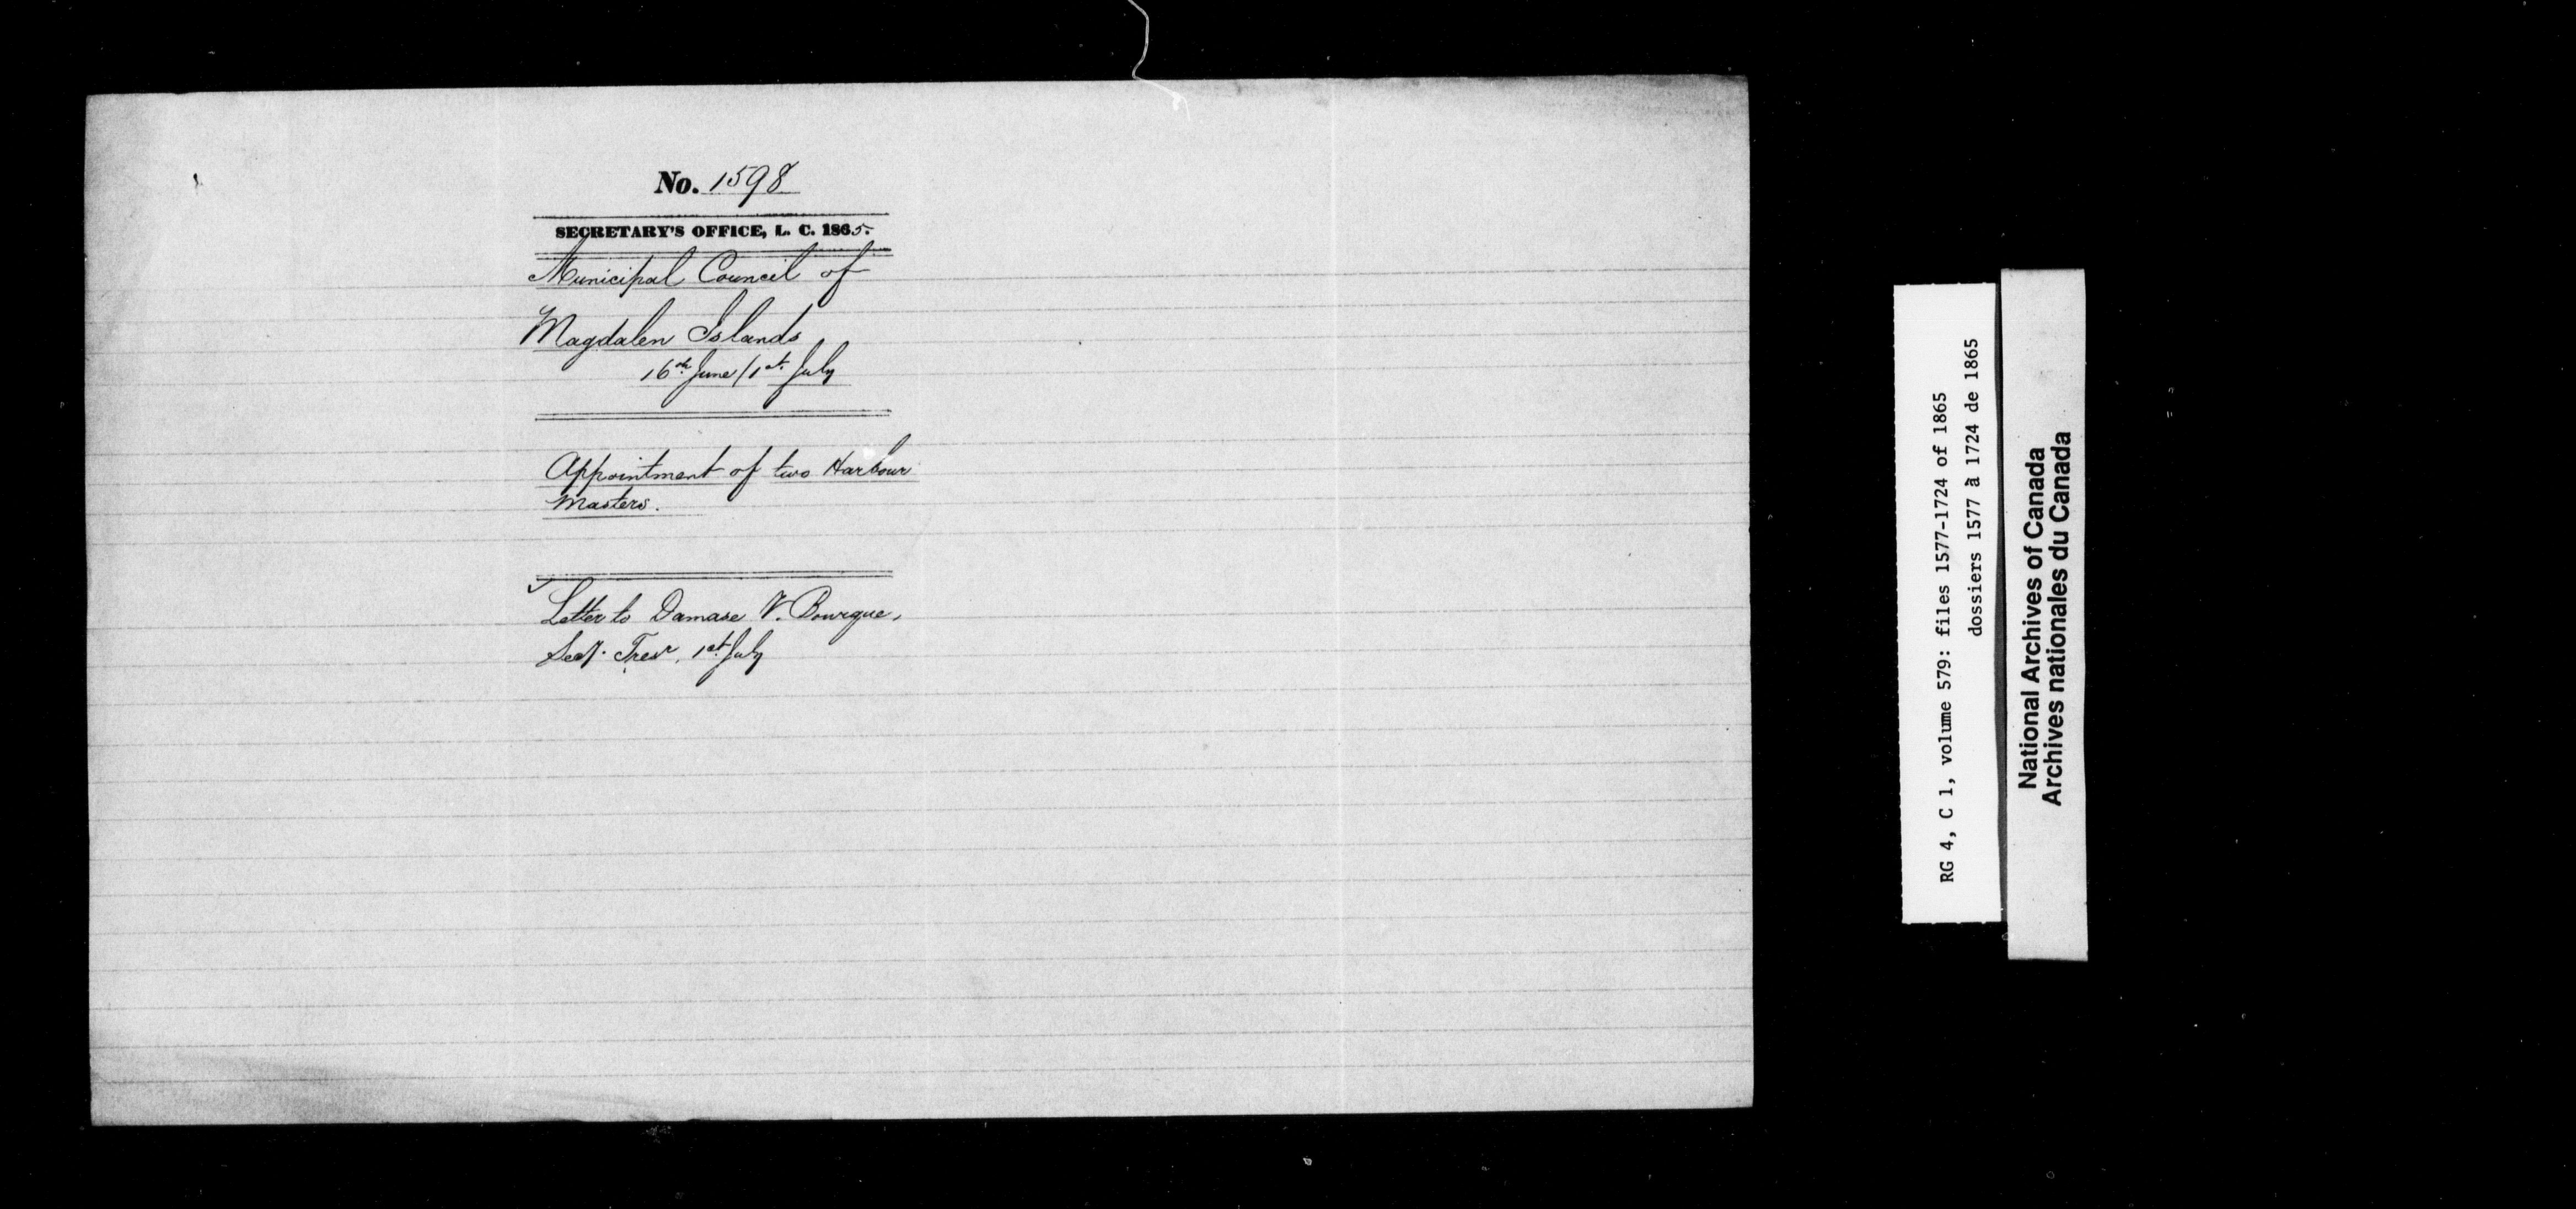 No. 1598
SECRETARY'S OFFICE, L. C. 1865.
Municipal Council of
Magdalen Islands
16th June/1st July
Appointment of two Harbour
Masters.
Letter to Damase V. Bourque,
Secy. Tresr, 1st July
RG 4, C 1, volume 579: files 1577-1724 of 1865
dossiers 1577 à 1724 de 1865
National Archives of Canada
Archives nationales du Canada